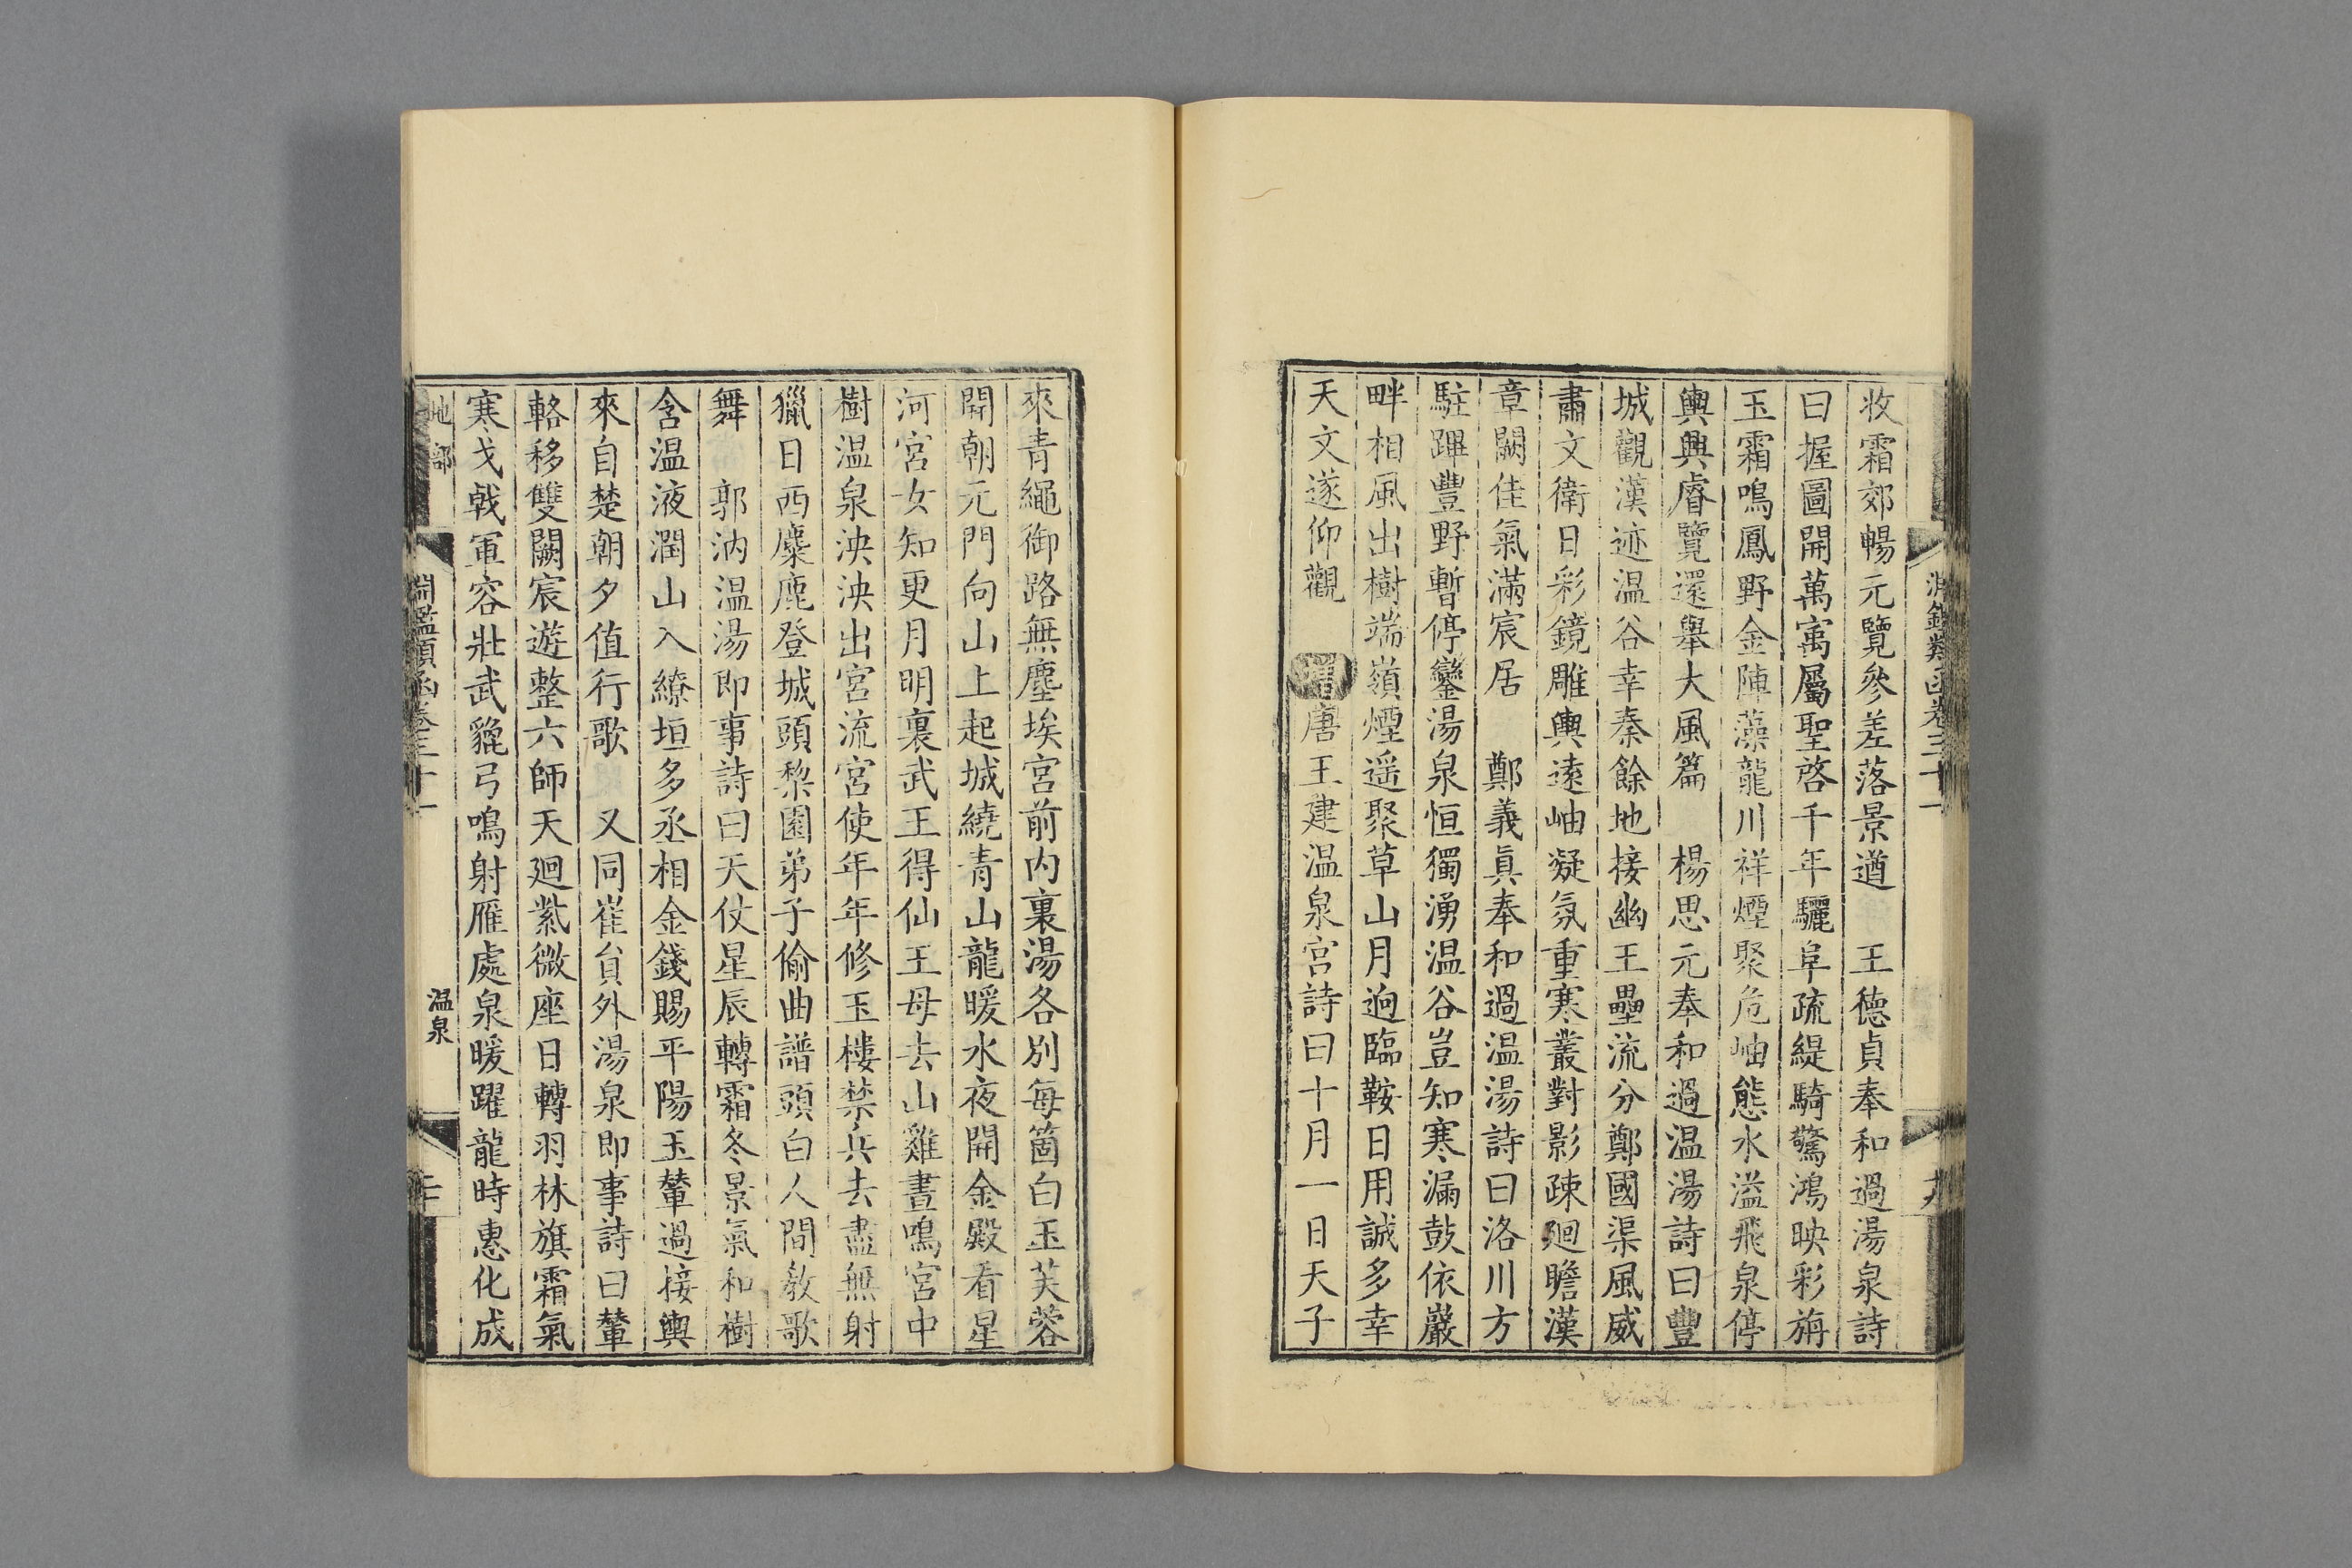 收霜郊暢元覽參差落景遒　王德貞奉和過湯泉詩
曰握圖開萬㝢屬聖啓千年驪阜疏緹騎驚鴻映彩旃
玉霜鳴鳳野金陣藻龍川祥煙聚危岫態水溢飛泉停
輿興睿覽還舉大風篇　楊思元奉和過温湯詩曰豐
城觀漢迹温谷幸秦餘地接幽王壘流分鄭國渠風威
肅文衛日彩鏡雕輿遠岫凝氛重寒叢對影疎廻瞻漢
章闕佳氣滿宸居　鄭義眞奉和過温湯詩曰洛川方
駐蹕豐野暫停鑾湯泉恒獨湧温谷豈知寒漏鼓依巖
畔相風出樹端嶺煙遥聚草山月逈臨鞍日用誠多幸
天文遂仰觀　增唐王建温泉宫詩曰十月一日天子
來青繩御路無塵埃宮前内裏湯各別每箇白玉芙蓉
開朝元門向山上起城繞青山龍暖水夜開金殿看星
河宮女知更月明裏武王得仙王母去山雞晝鳴宮中
樹温泉泱泱出宮流宮使年年修玉樓禁兵去盡無射
獵日西麋鹿登城頭梨園弟子偷曲譜頭白人間教歌
舞　郭汭温湯即事詩曰天仗星辰轉霜冬景氣和樹
含温液潤山入繚垣多丞相金錢賜平陽玉輦過接輿
來自楚朝夕值行歌　又同崔貟外湯泉即事詩曰輦
輅移雙闕宸遊整六師天廻紫微座日轉羽林旗霜氣
寒戈戟軍容壯武貔弓鳴射雁處泉暖躍龍時惠化成
地部
淵鑑類函卷三十一
温泉